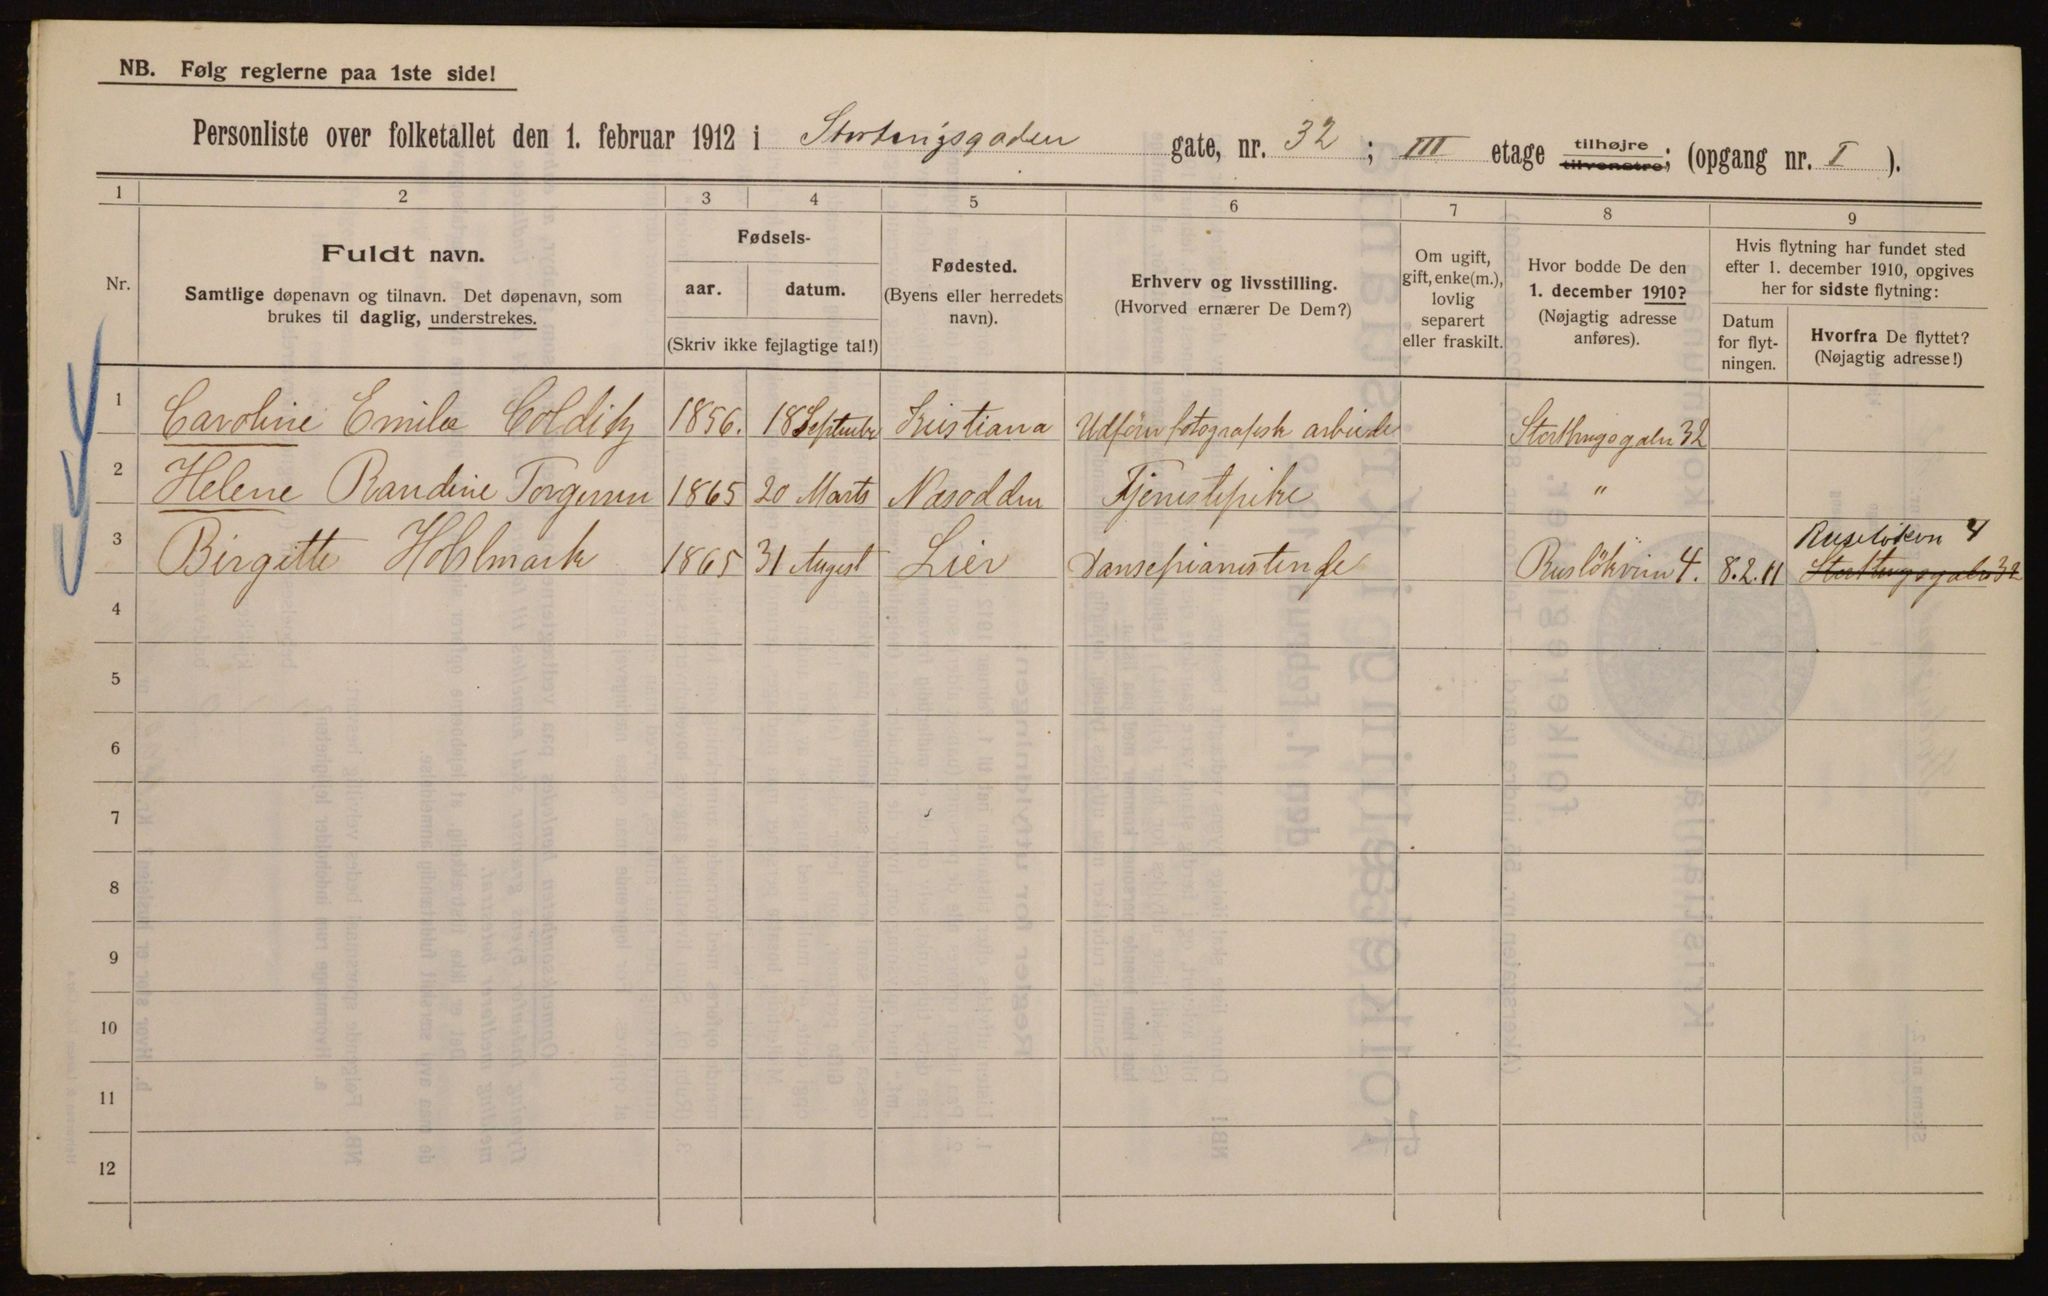 NB. Følg reglerne paa 1ste side!
Personliste over folketallet den 1. februar 1912 i Stortingsgaden gate, nr. 32 ; III etage tilhøjre tilvenstre; (opgang nr. I ).
1 2 3 4 5 6 7 8 9
Nr.
Fuldt navn.
Samtlige døpenavn og tilnavn. Det døpenavn, som
brukes til daglig, understrekes.
Fødsels-
aar. datum.
(Skriv ikke fejlagtige tal!)
Fødested.
(Byens eller herredets
navn).
Erhverv og livsstilling.
(Hvorved ernærer De Dem?)
Om ugift,
gift, enke(m.),
lovlig
separert
eller fraskilt.
Hvor bodde De den
1. december 1910?
(Nøjagtig adresse
anføres).
Hvis flytning har fundet sted
efter 1. december 1910, opgives
her for sidste flytning:
Datum
for flyt-
ningen.
Hvorfra De flyttet?
(Nøjagtig adresse!)
1 Caroline Emilie Colditz 1856. 18 September Kristiana Udfører fotografisk arbeide Storthingsgaden 32
2 Helene Randine Torgersen 1865 20 Marts Næsodden Tjenestepike "
3 Birgitte Holslmark 1865 31 August Lier Dansepianistinde Rusløkvein 4. 8.2.11 Ruseløkvn 4
Storthingsgaden 32
4
5
6
7
8
9
10
11
12